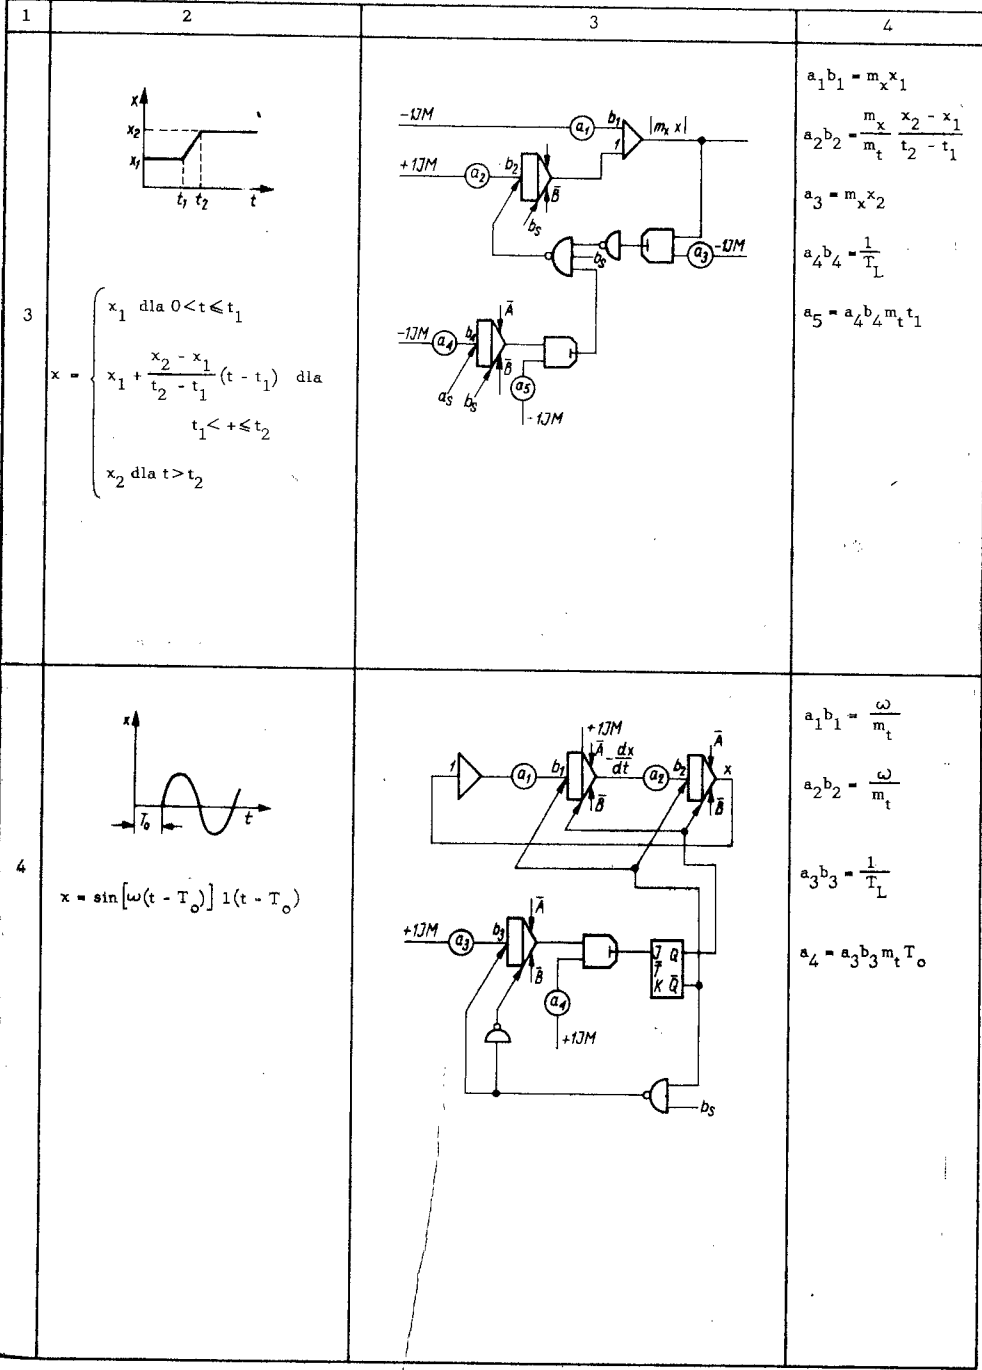 1 2 3 4
3
x
x₂
x₁
t₁ t₂ t
x = { x₁ dla 0<t⩽t₁
x₁ + (x₂ - x₁)/(t₂ - t₁) (t - t₁) dla
t₁< +⩽t₂
x₂ dla t>t₂
-1JM a₁ b₁ |mₓ x|
1
+1JM a₂ b₂ B̄
bs
bs a₃ -1JM
Ā
-1JM a₄ b₄ B̄
as bs a₅
-1JM
a₁b₁ = mₓx₁
a₂b₂ = mₓ/m_t (x₂ - x₁)/(t₂ - t₁)
a₃ = mₓx₂
a₄b₄ = 1/T_L
a₅ = a₄b₄m_t t₁
4
x
T₀ t
x = sin[ω(t - T₀)] 1(t - T₀)
+1JM
1 a₁ b₁ Ā -dx/dt a₂ b₂ Ā x
B̄ B̄
Ā
+1JM a₃ b₃ J Q
B̄ T̄
a₄ K Q̄
+1JM
bs
a₁b₁ = ω/m_t
a₂b₂ = ω/m_t
a₃b₃ = 1/T_L
a₄ = a₃b₃m_t T₀